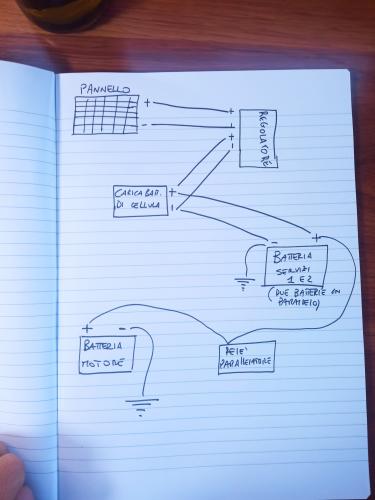 PANNELLO
+
+
-
-
+
-
REGOLATORE
CARICABATT.
DI CELLULA
+
-
-
+
BATTERIA
SERVIZI
1 E 2
(DUE BATTERIE IN
PARALLELO)
+
-
BATTERIA
MOTORE
RELE'
PARALLELATORE